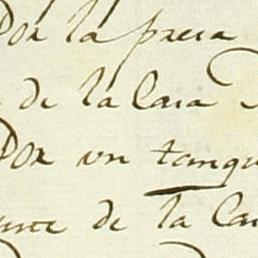 Por la presa
de la Casa
Por un tanqu
de la Cas